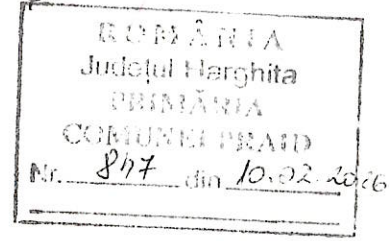 ROMÂNIA
Județul Harghita
PRIMĂRIA
COMUNEI PRAID
Nr. 847 din 10.02.2016